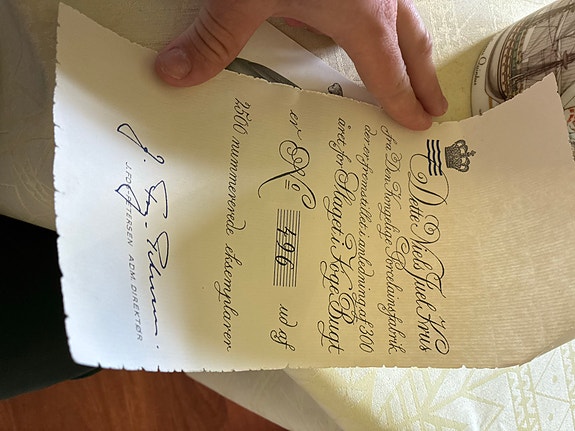 Dette Niels Juel Krus
fra Den Kongelige Porcelainsfabrik
der er fremstillet i anledning af 300
året for Slaget i Køge Bugt
er No 496 ud af
2500 nummererede eksemplarer
J. FOG-PETERSEN ADM. DIREKTØR